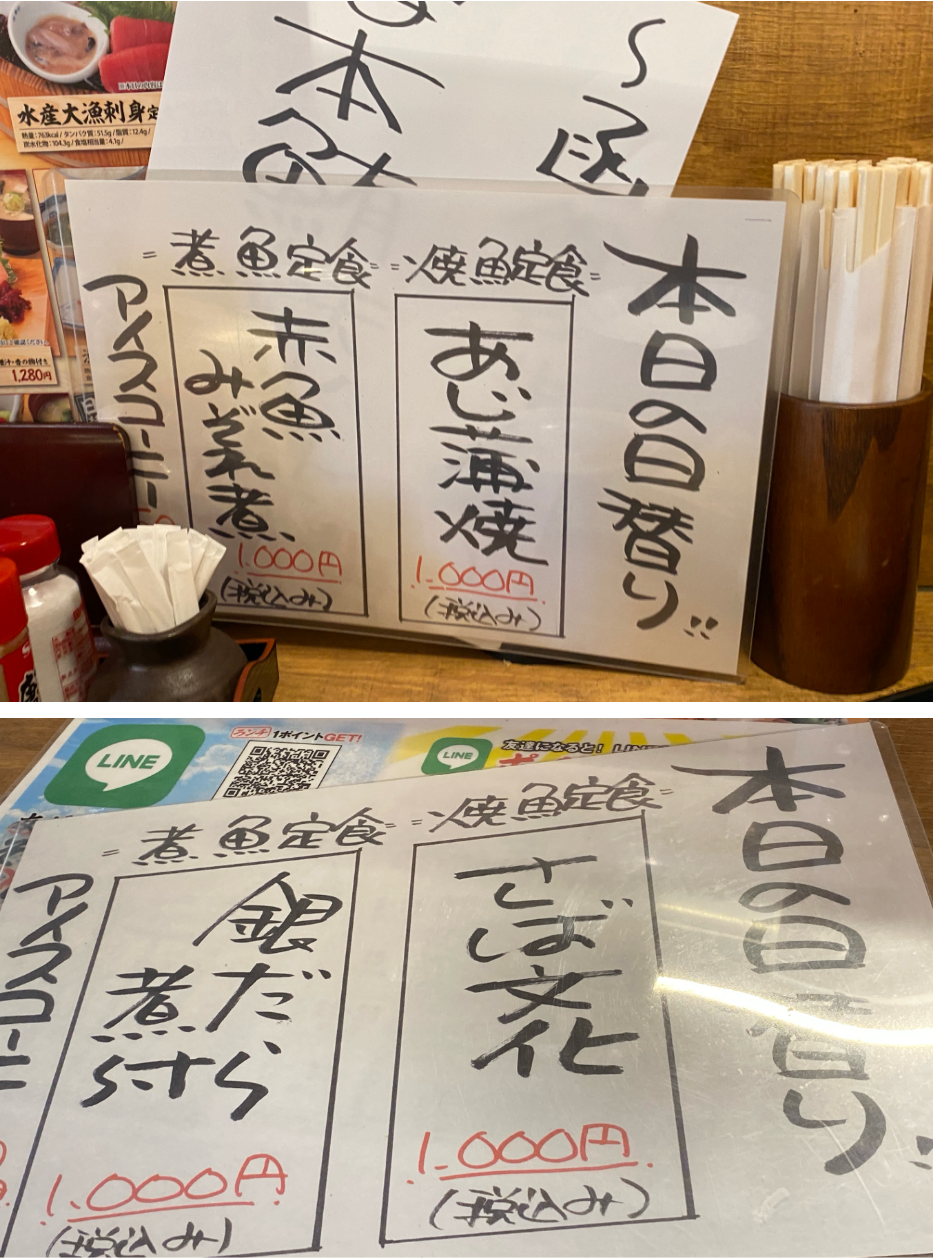 水産大漁刺身定
熱量:763kcal/タンパク質:51.5g/脂質:12.4g/
炭水化物:104.3g/食塩相当量:4.1g/
1,280円
本
本日の日替り!!
=焼魚定食=
あじ蒲焼
1.000円
(税込み)
=煮魚定食=
赤魚
みぞれ煮
1.000円
(税込み)
アイスコーヒー
LINE
ランチ 1ポイントGET!
LINE
友達になると! LINE
本日の日替り!!
=焼魚定食=
さば文化
1.000円
(税込み)
=煮魚定食=
銀だら
煮
1.000円
(税込み)
アイスコーヒー